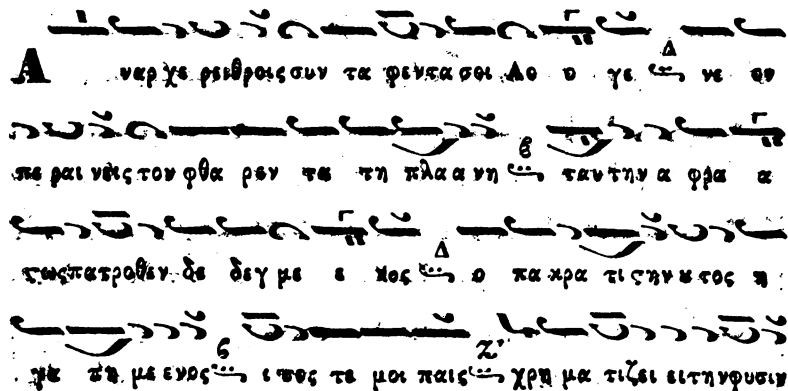 Α ναρχε ρειθροις συν τα φεντα σοι Λο ο γε Δ νε ον
πε ραι νεις τον φθα ρεν τα τη πλα α νη ϐ ταυ την α φρα α
τως πατροθεν δε δεγ με ε νος Δ ο πα κρα τι ϛην ȣ τος η
γα πη με ενος ϛ ι σος τε μοι παις Ζʹ χρη μα τιζει ει την φυσιν